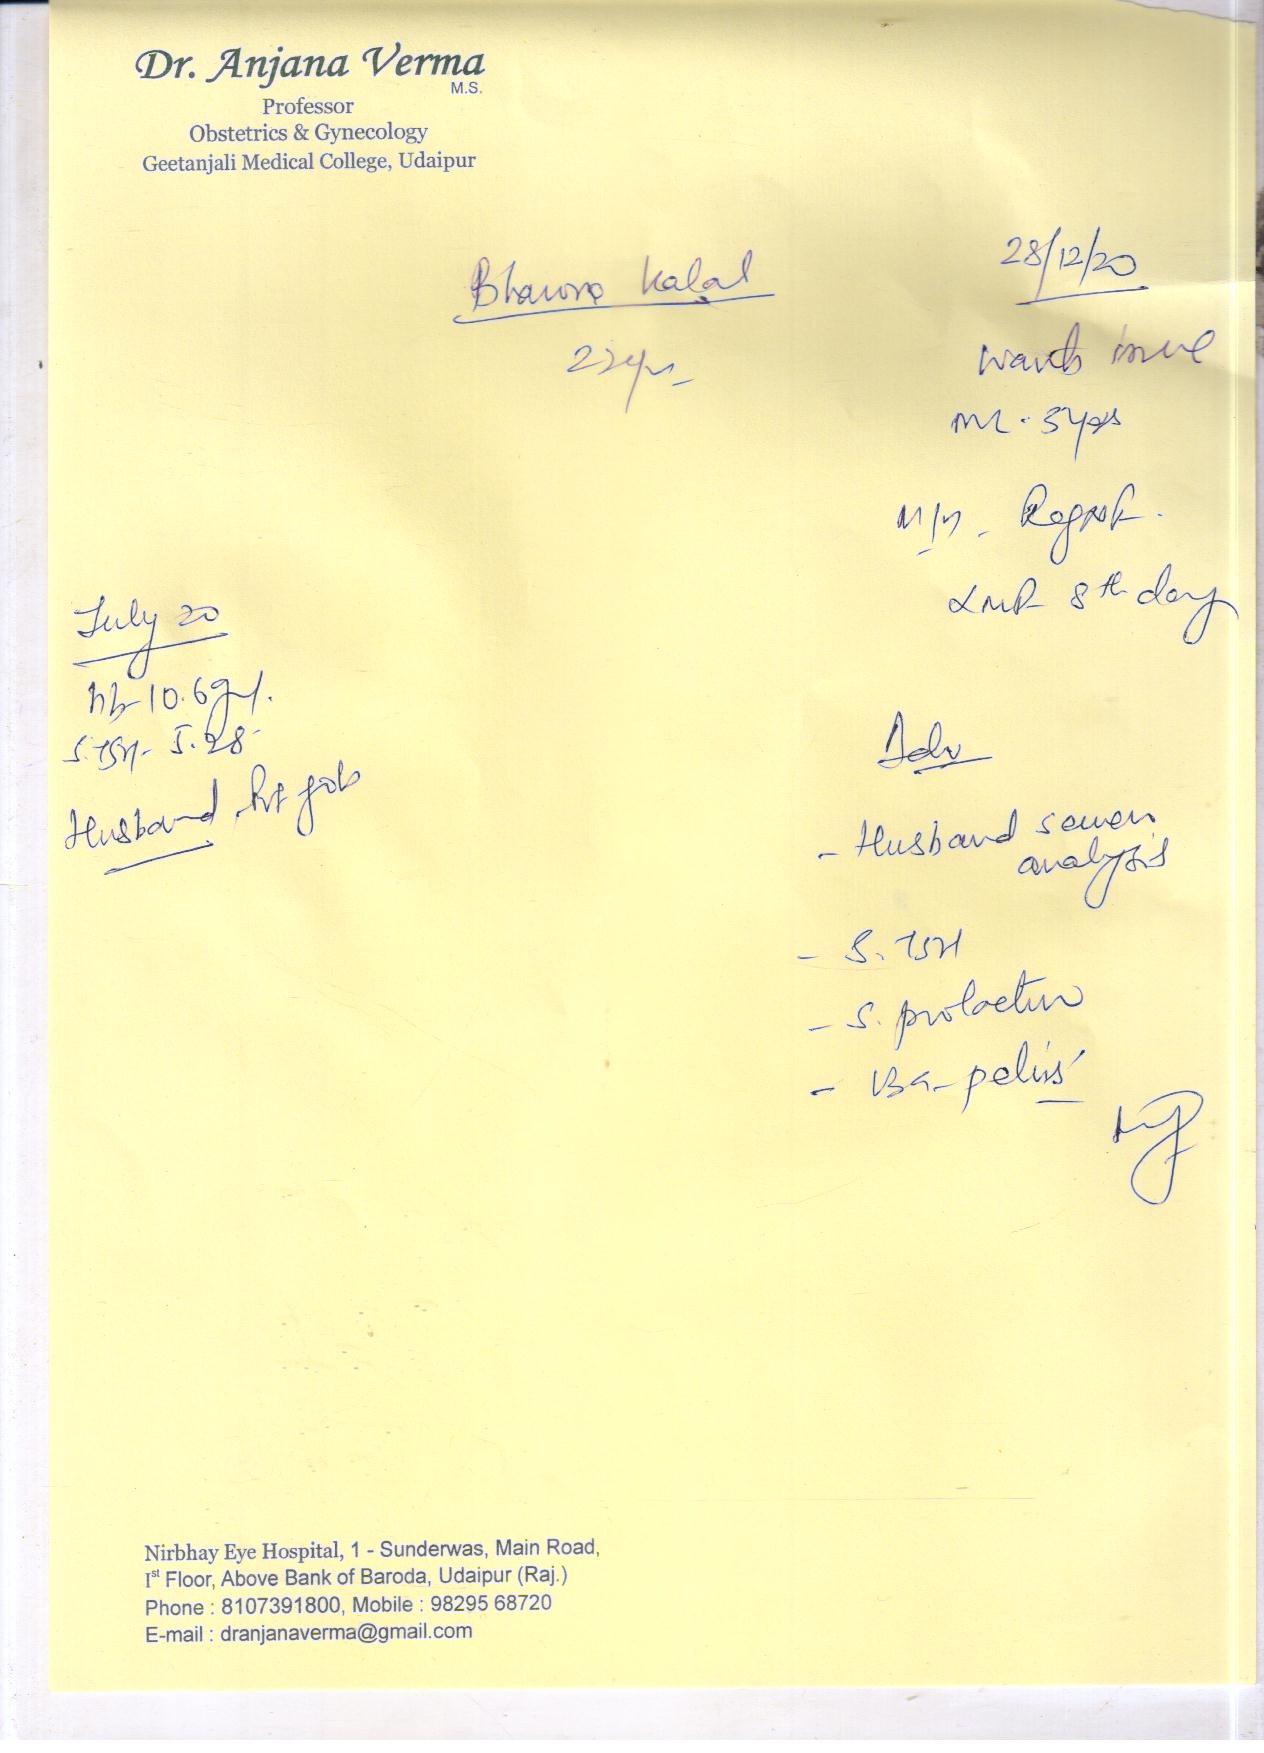 Dr. Anjana Verma
M.S.
Professor
Obstetrics & Gynecology
Geetanjali Medical College, Udaipur
28/12/20
Kalal
wants issue
ML - 3 yrs
M/H -
LMP 8th day
July 20
Hb - 10.6 gm%
S. TSH - 5.28
Husband Pvt job
Adv
- Husband semen
analysis
- S. TSH
- S. prolactin
- pelvis
Nirbhay Eye Hospital, 1 - Sunderwas, Main Road,
Ist Floor, Above Bank of Baroda, Udaipur (Raj.)
Phone : 8107391800, Mobile : 98295 68720
E-mail : dranjanaverma@gmail.com